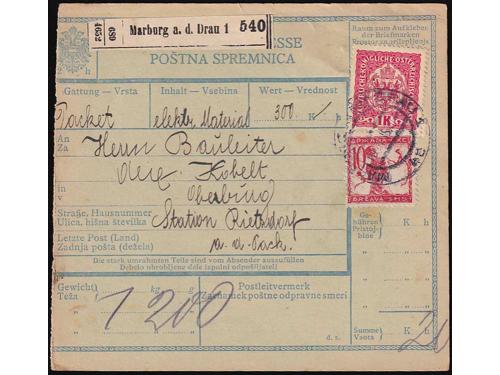 4652
689
Marburg a. d. Drau 1 540
ESSE
POŠTNA SPREMNICA
Raum zum Aufkleben
der Briefmarken
Gattung - Vrsta
Inhalt - Vsebina
Wert - Vrednost
Packet
elektr. Material
300 K
An
Za
Herrn Bauleiter
Kobelt
in
v
Straße, Hausnummer
Ulica, hišna številka
Station Rietzdorf
Letzte Post (Land)
Zadnja pošta (dežela)
a. d. Pack.
Die stark umrahmten Teile sind vom Absender auszufüllen
Debelo obrobljene dele izpolni odpošiljatelj
Gewicht
Teža
kg
g
1 200
Postleitvermerk
Zaznamek poštne odpravne smeri
1K
10
DRŽAVA SHS
Ge-
bühren
Pristoj-
bine
K h
Summe
Vsota
K h
d. z.